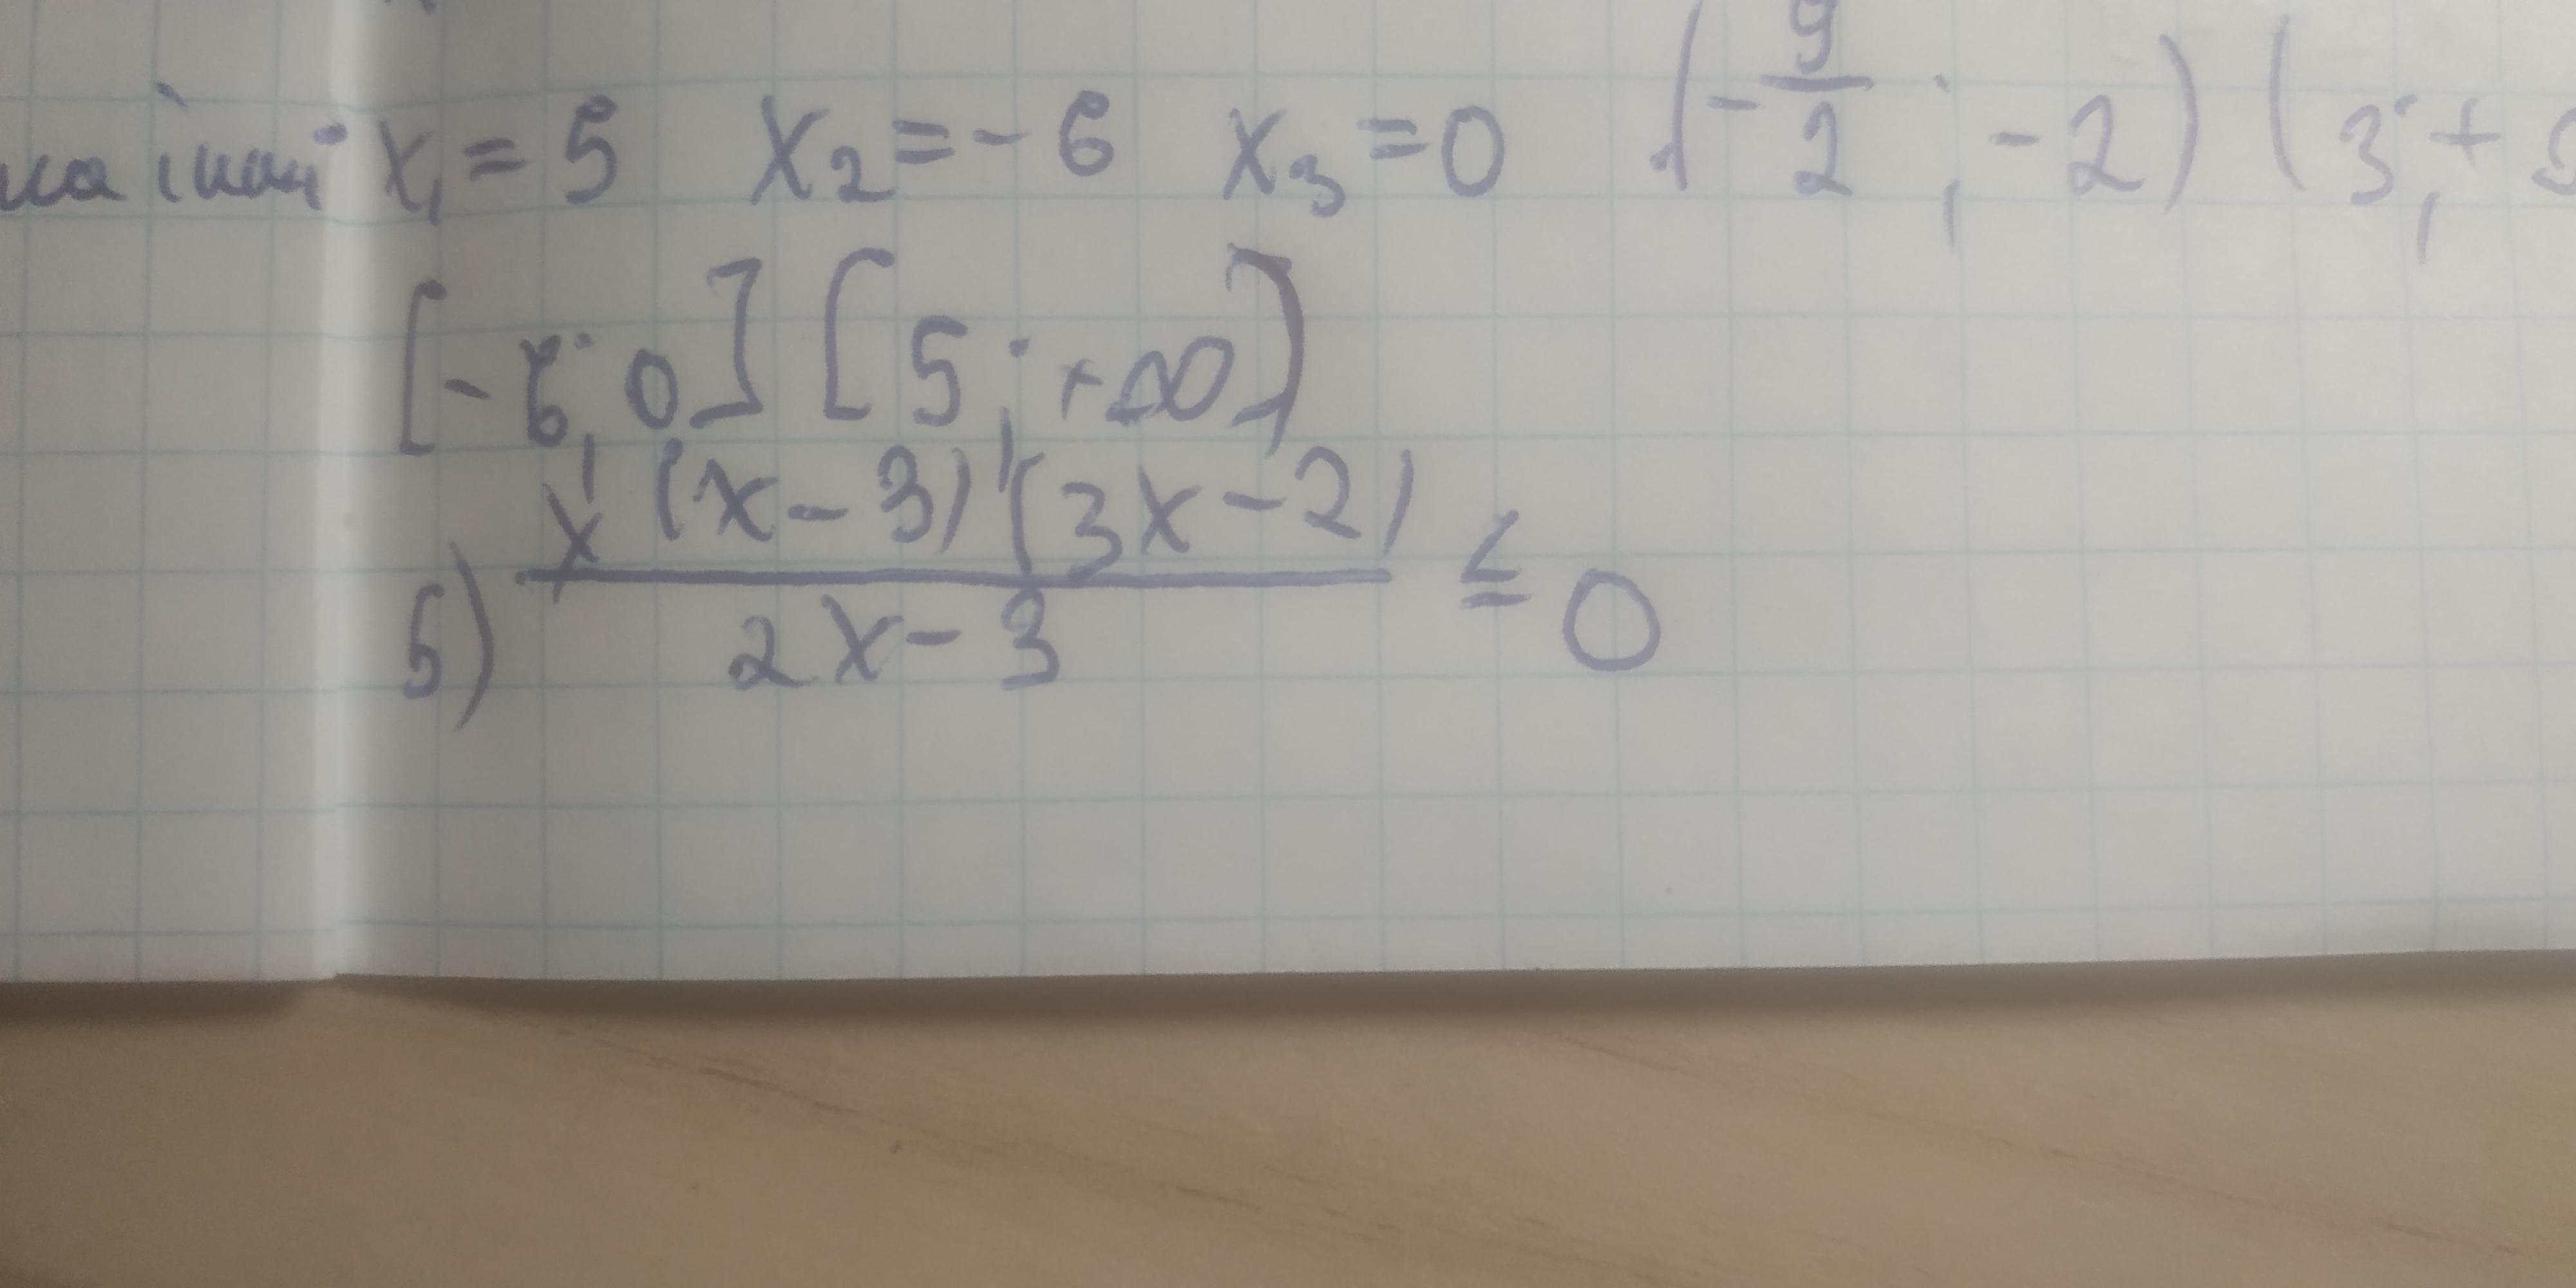 x₁ = 5 x₂ = - 6 x₃ = 0 (-9/2; -2) (3; +
[-6; 0] [5; +∞)
5) x(x-3)(3x-2)/2x-3 ≤ 0